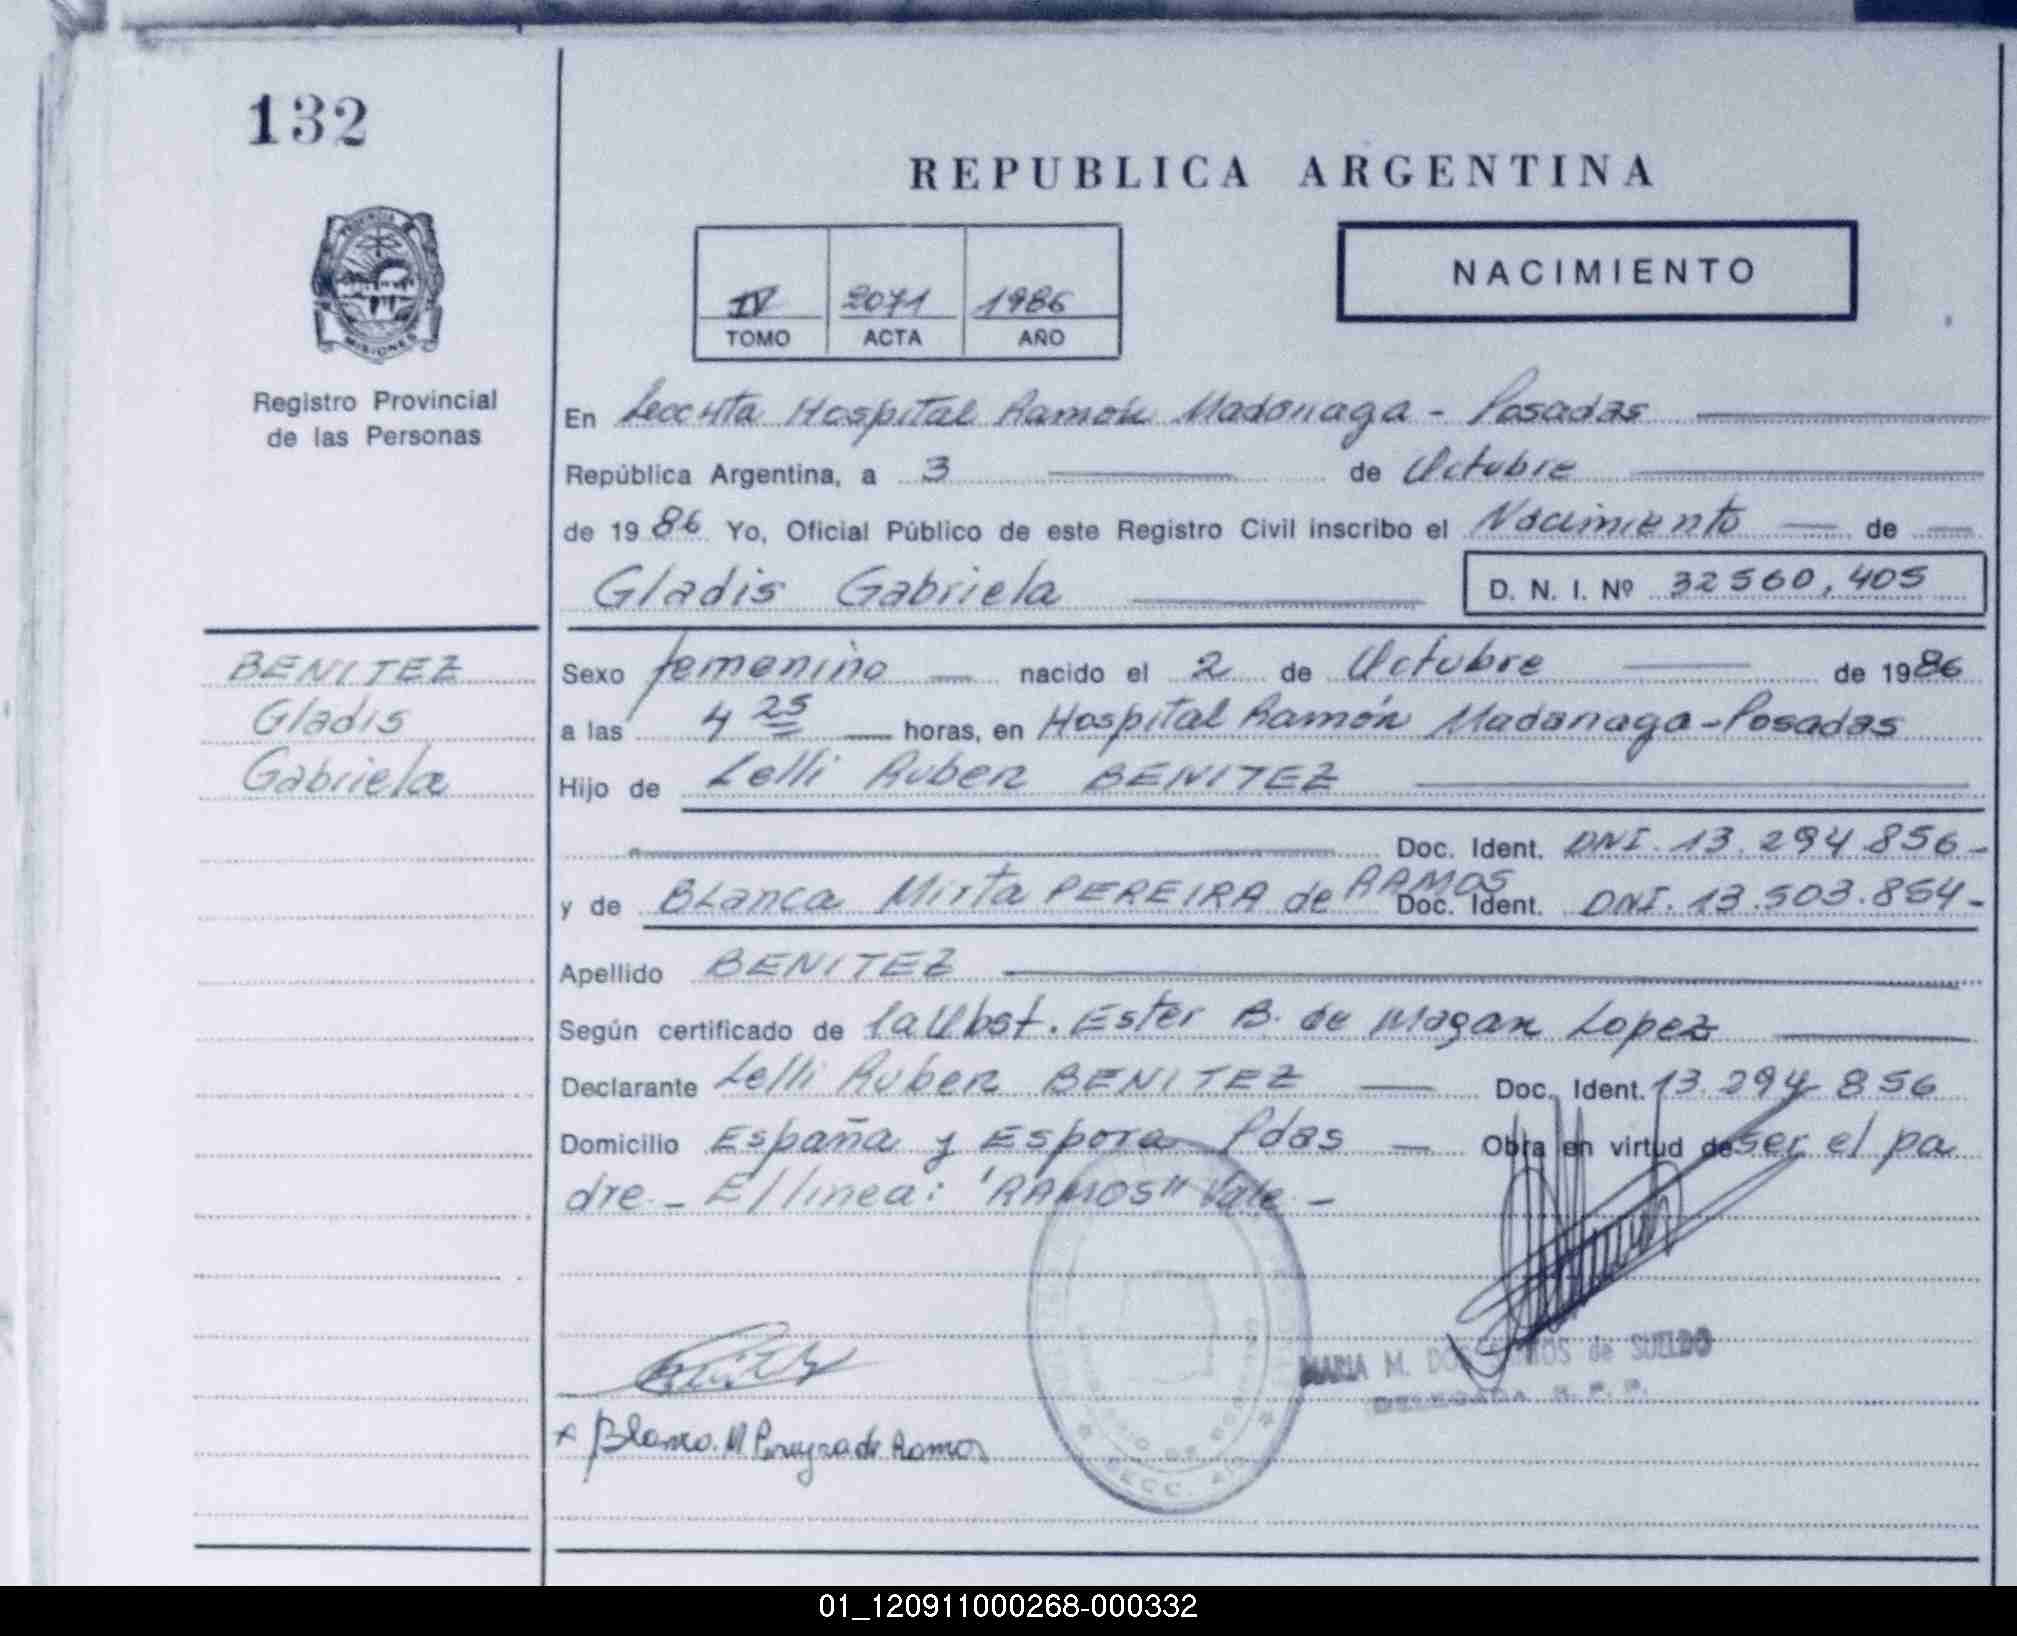 132
REPUBLICA ARGENTINA
PROVINCIA DE
MISIONES
NACIMIENTO
IV 2071 1986
TOMO ACTA AÑO
Registro Provincial
de las Personas
En Hospital Ramón Madariaga - Posadas
República Argentina, a 3 de Octubre
de 1986 Yo, Oficial Público de este Registro Civil inscribo el Nacimiento de
Gladis Gabriela D. N. I. Nº 32560,405
BENITEZ
Gladis
Gabriela
Sexo femenino nacido el 2 de Octubre de 1986
a las 4 25 horas, en Hospital Ramón Madariaga - Posadas
Hijo de Lelli Ruben BENITEZ
Doc. Ident. DNI. 13.294.856-
y de Blanca Mirta PEREIRA de RAMOS Doc. Ident. DNI. 13.503.864-
Apellido BENITEZ
Según certificado de la Obst. Ester B. de Magan Lopez
Declarante Lelli Ruben BENITEZ Doc. Ident. 13.294 856
Domicilio España y Espora Pdas Obra en virtud de ser el pa
dre - E/linea: "RAMOS" Vale -
MARIA M. de SUELDO
DELEGADA R. P. P.
Blanca. M. Pereyra de Ramos
01_120911000268-000332